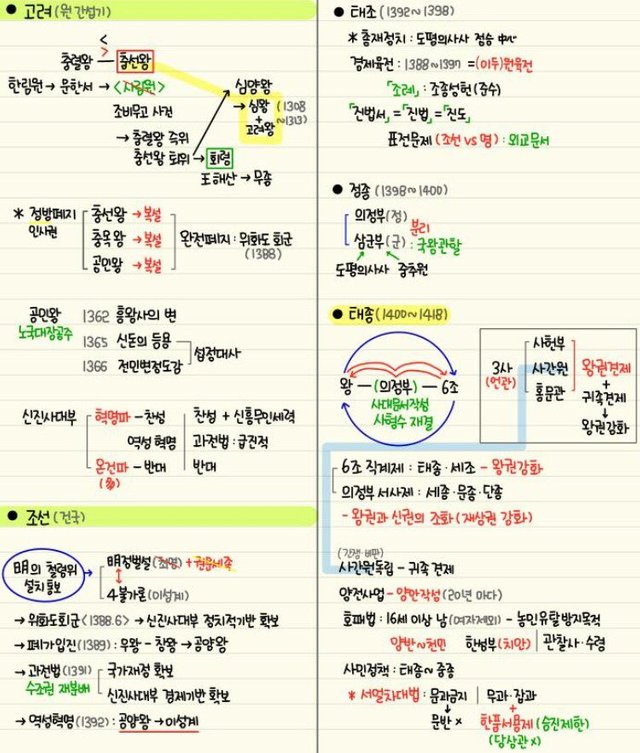 ● 고려 (원 간섭기)
<
>
충렬왕 — 충선왕
한림원 → 문한서 → <사림원>
심양왕
→ 심왕 (1308
+ ~1313)
고려왕
조비무고 사건
→ 충렬왕 즉위
충선왕 퇴위 → 회령
도해산 → 무종
* 정방폐지
인사권
충선왕 → 복설
충목왕 → 복설
공민왕 → 복설
완전폐지 : 위화도 회군
(1388)
공민왕
노국대장공주
1362 흥왕사의 변
1365 신돈의 등용
1366 전민변정도감
섬정대사
신진사대부
혁명파 - 찬성
역성 혁명
온건파 - 반대
(多)
찬성 + 신흥무인세력
과전법 : 급진적
반대
● 조선 (건국)
明의 철령위
설치 통보
明정벌설 (최영) + 권문세족
4불가론 (이성계)
→ 위화도회군 (1388.6) → 신진사대부 정치적기반 확보
→ 폐가입진 (1389) : 우왕 - 창왕 → 공양왕
→ 과전법 (1391)
수조권 재분배
국가재정 확보
신진사대부 경제기반 확보
→ 역성혁명 (1392) : 공양왕 → 이성계
● 태조 (1392 ~ 1398)
* 총재정치 : 도평의사사 정승 中心
경제육전 : 1388~1397 = (이두)원육전
「조례」 : 조종성헌 (준수)
「진법서」 = 「진법」 = 「진도」
표전문제 (조선 vs 명) : 외교문서
● 정종 (1398 ~ 1400)
의정부 (정)
분리
삼군부 (군) : 국왕관할
도평의사사 중추원
● 태종 (1400 ~ 1418)
왕 — (의정부) — 6조
사대문서작성
사형수 재결
3사
(언관)
사헌부
사간원
홍문관
왕권견제
+
귀족견제
↓
왕권강화
6조 직계제 : 태종 · 세조 - 왕권강화
의정부 서사제 : 세종 · 문종 · 단종
- 왕권과 신권의 조화 (재상권 강화)
(간쟁·비판)
사간원독립 - 귀족 견제
양전사업 - 양안작성 (20년 마다)
호패법 : 16세 이상 남 (여자제외) - 농민유탈방지목적
양반~천민
한성부 (치안) | 관찰사 · 수령
사민정책 : 태종 ~ 중종
* 서얼차대법 : 문과금지 | 무과 · 잡과
↓
문반 x
+
한품서용제 (승진제한)
(당상관 x)